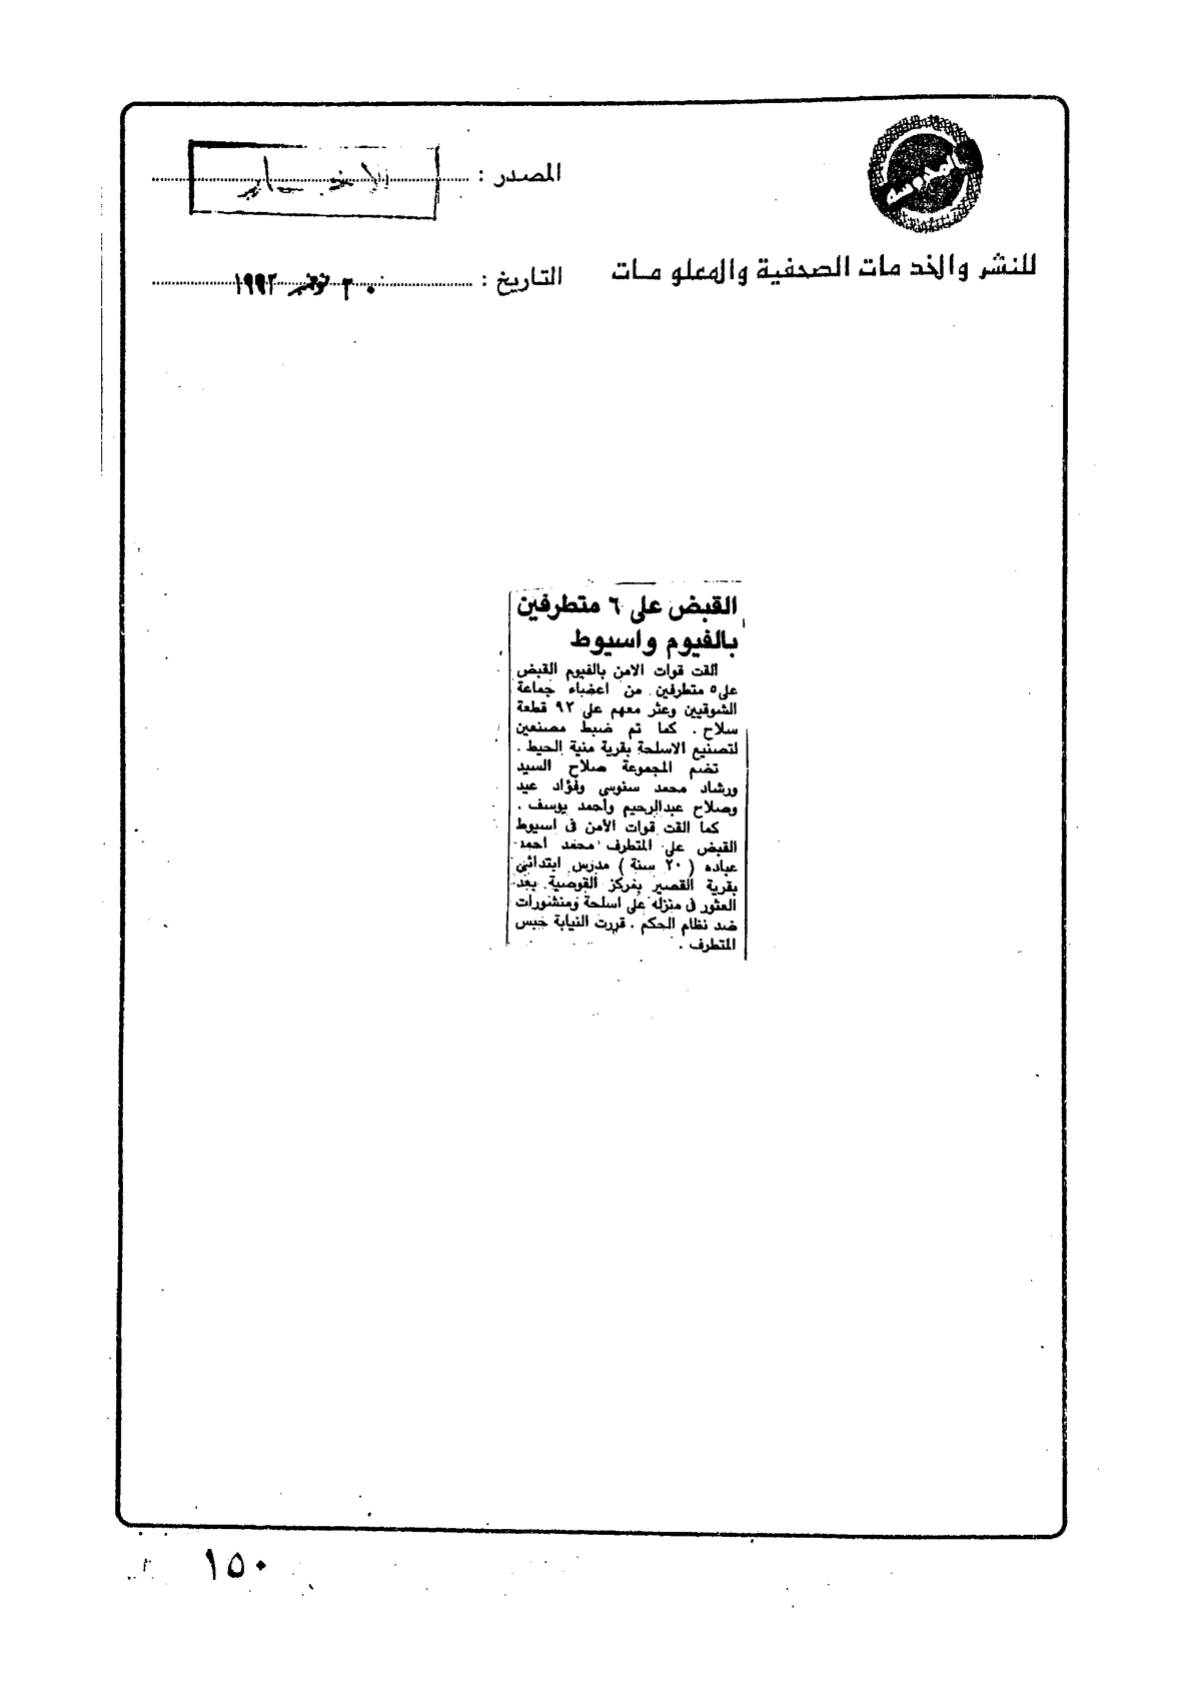 المصدر :
الاخبار
للنشر والخدمات الصحفية والمعلومات
التاريخ :
٣٠ نوفمبر ١٩٩٢
القبض على ٦ متطرفين
بالفيوم واسيوط
ألقت قوات الامن بالفيوم القبض
على ٥ متطرفين من اعضاء جماعة
الشوقيين وعثر معهم على ٩٢ قطعة
سلاح . كما تم ضبط مصنعين
لتصنيع الاسلحة بقرية منية الحيط .
تضم المجموعة صلاح السيد
ورشاد محمد سنوسى وفؤاد عيد
وصلاح عبدالرحيم وأحمد يوسف .
كما القت قوات الأمن فى اسيوط
القبض على المتطرف محمد احمد
عباده ( ٢٠ سنة ) مدرس ابتدائي
بقرية القصير بمركز القوصية بعد
العثور فى منزله على اسلحة ومنشورات
ضد نظام الحكم . قررت النيابة حبس
المتطرف .
١٥٠